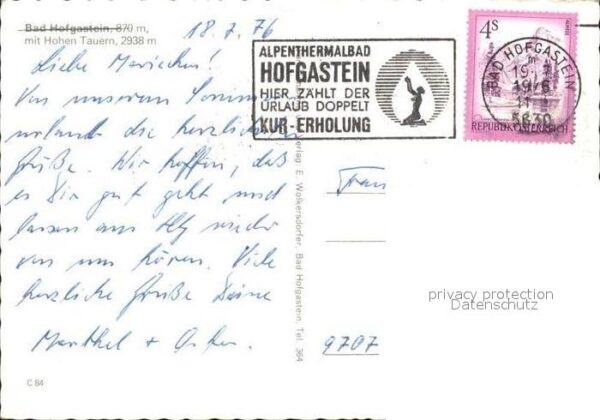 Bad Hofgastein, 870 m,
mit Hohen Tauern, 2938 m
18.7.76
Liebe Mariechen!
Von unserem Sommer-
urlaub die herzlichsten
Grüße. Wir hoffen, daß
es Dir gut geht und
lassen aus wieder
von uns hören. Viele
herzliche Grüße Deine
Marthel +
C 84
ALPENTHERMALBAD
HOFGASTEIN
HIER ZÄHLT DER
URLAUB DOPPELT
KUR-ERHOLUNG
4S
REPUBLIK ÖSTERREICH
BAD HOFGASTEIN
1976
5630
Verlag: E. Wolkersdorfer, Bad Hofgastein, Tel. 364
Frau
privacy protection
Datenschutz
9707